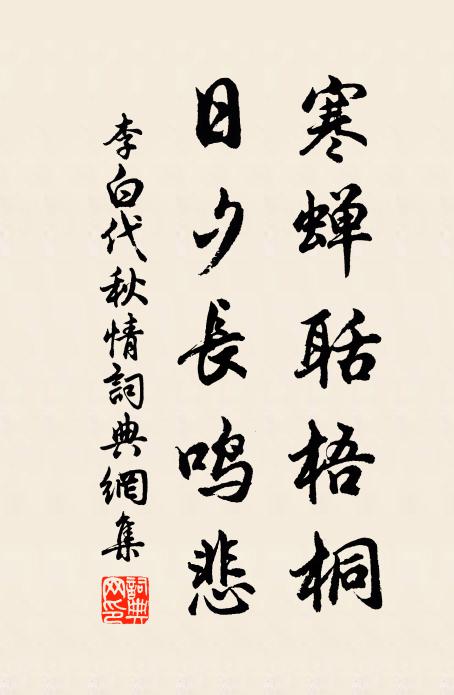 寒蝉聒梧桐
日夕長鸣悲
李白代秋情詞典網集
詞典
网印